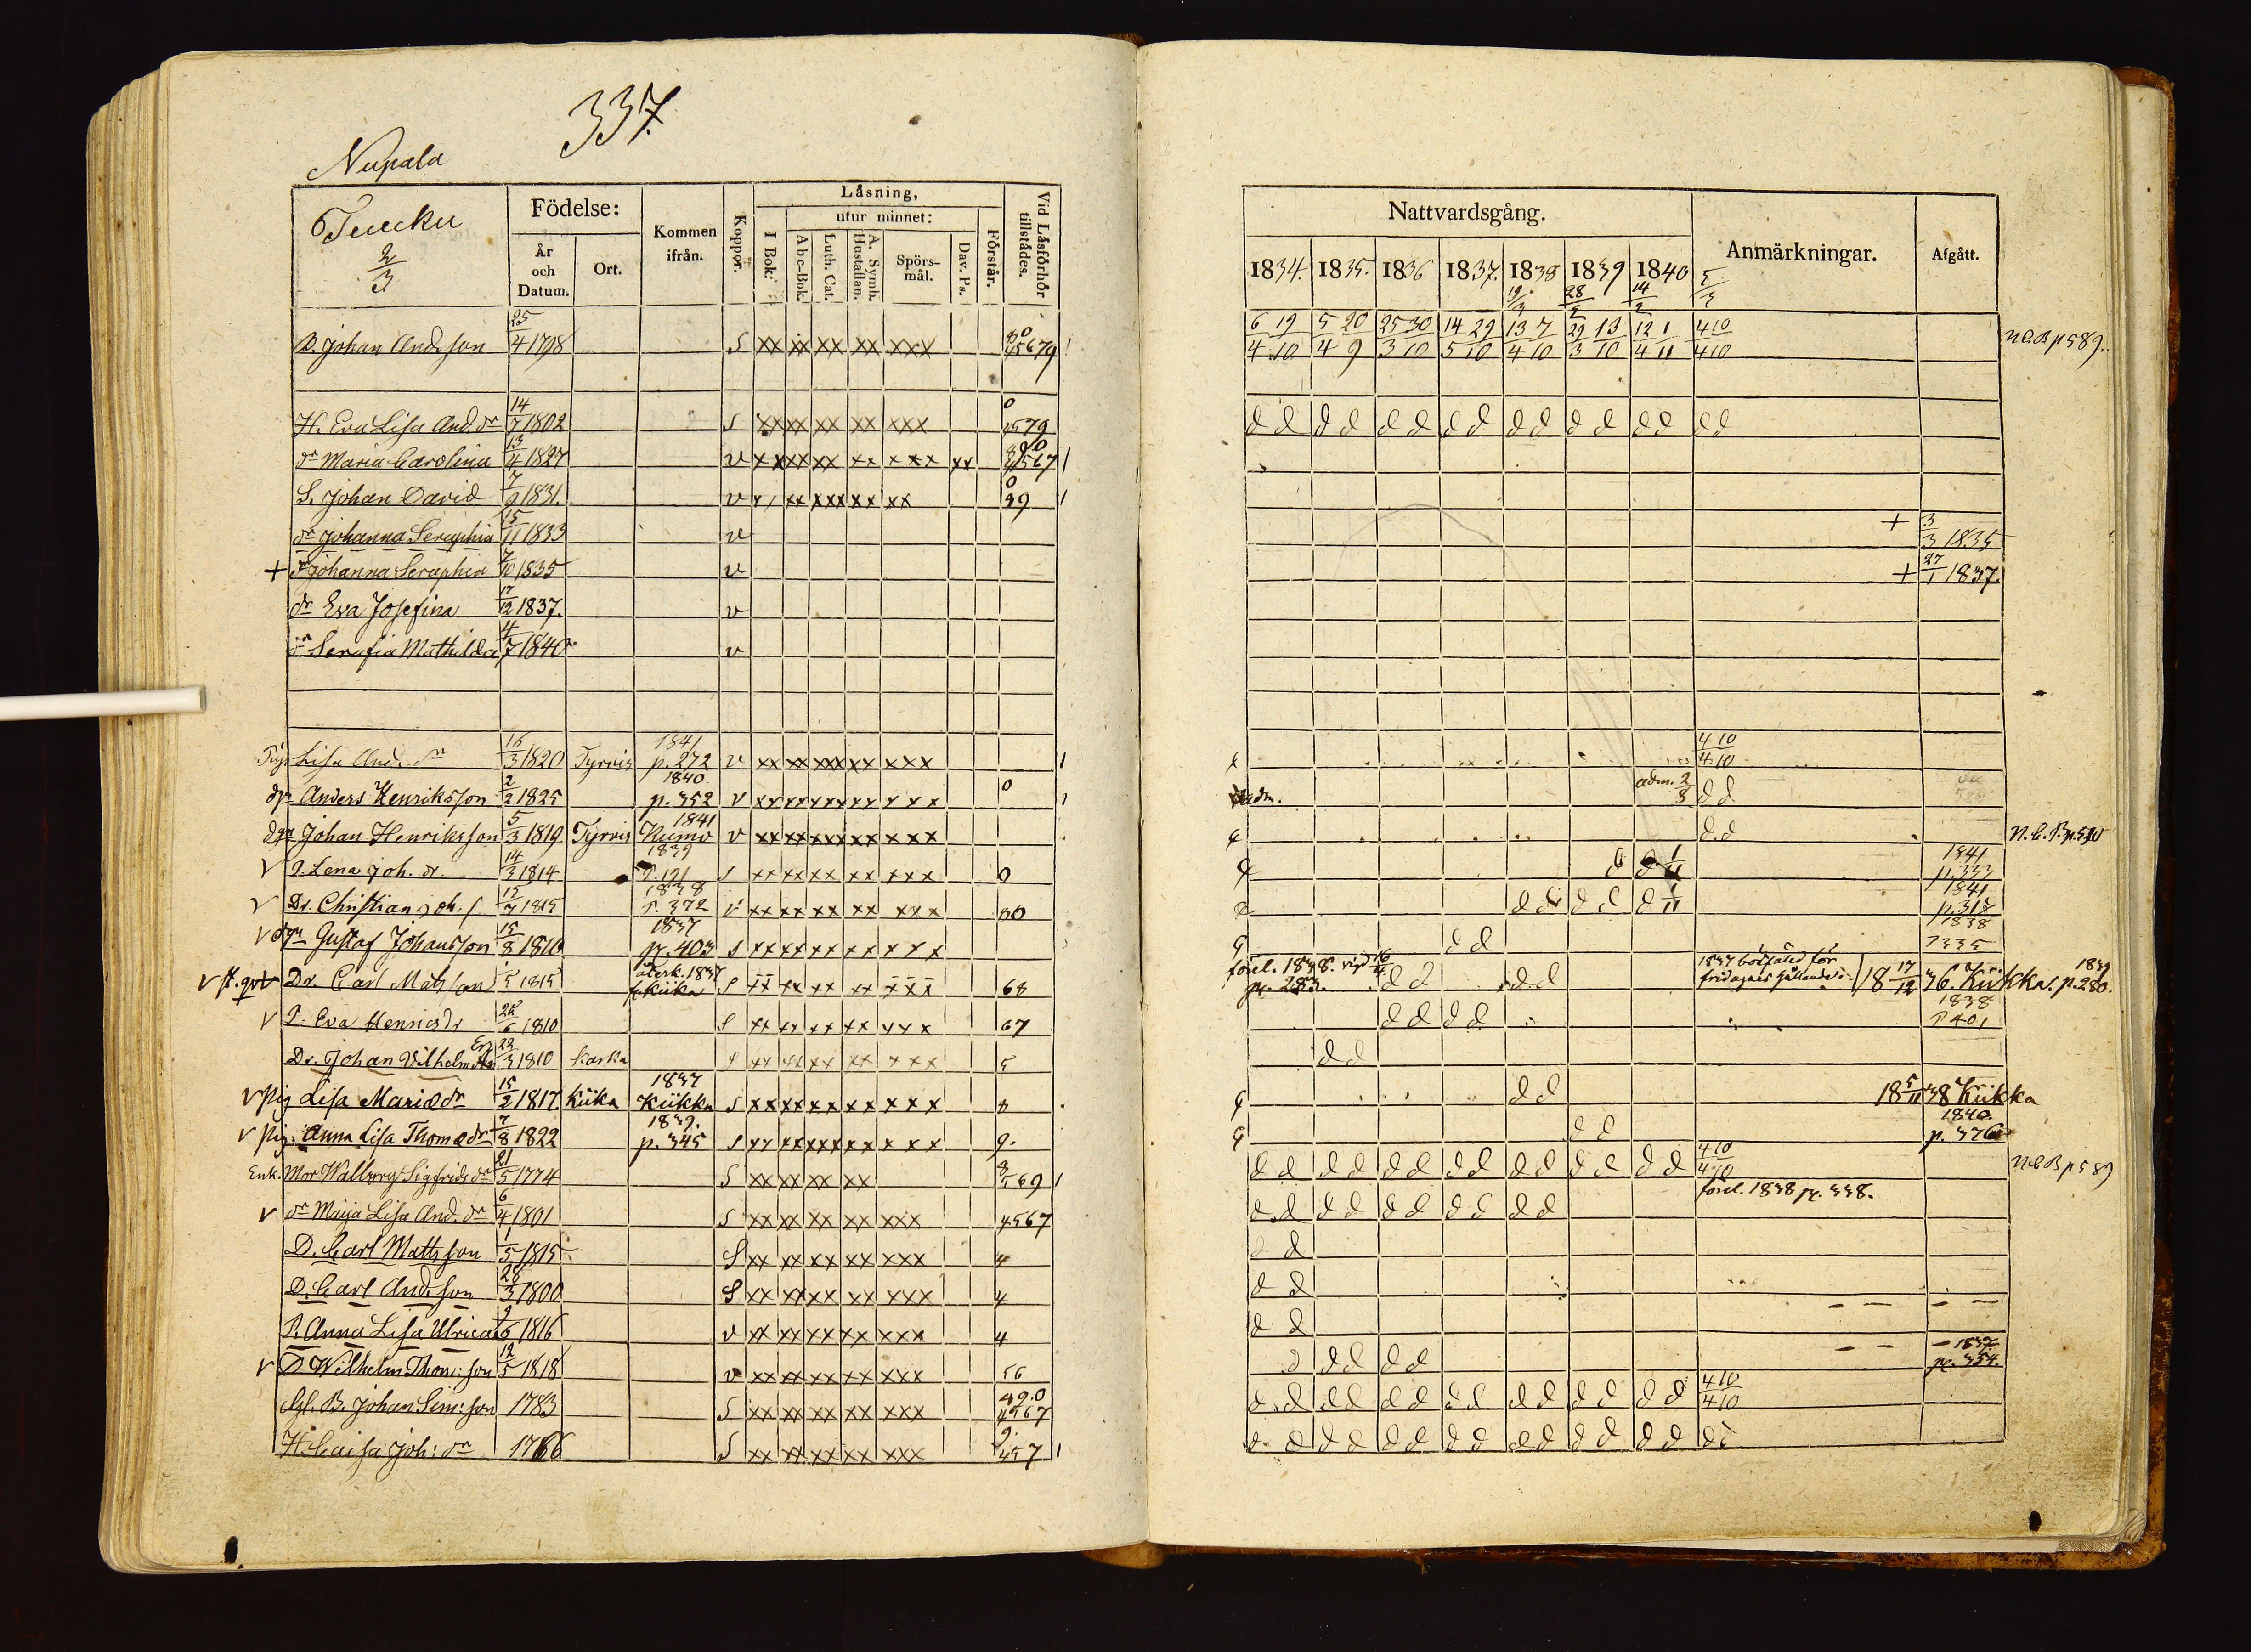 337.
Nupala
Tuecku 2/3
Födelse:
År och Datum.
Ort.
Kommen ifrån.
Koppor.
Läsning,
I Bok:
utur minnet:
Abc-Bok.
Luth. Cat.
A. Symb. Hustaflan.
Spörsmål.
Dav. Ps.
Förstår.
Vid Läsförhör tillstädes.
Nattvardsgång.
1834. 1835. 1836 1837. 1838 1839 1840
19/3 28/2 14/2 5/3
Anmärkningar.
Afgått.
B. Johan And: son 25/4 1798 S xx xx xx xx xxx 6 19/4 10 5 20/4 9 25 30/3 10 14 29/5 10 13 7/4 10 29 13/3 10 12 1/4 11 4 10/4 10 N.C.B p 589.
H. Eva Lisa And. dr 14/7 1802 S xx xx xx xx xxx 0 579 d d d d d d d d d d d d d d d d
dr Maria Carolina 13/4 1827 v xx xx xx xx xxx xx 4567
S. Johan David 7/9 1831. v x/ xx xxx xx xx 0 89
dr Johanna Seraphia 15/11 1833 v + 3/3 1835
+ dr Johanna Seraphia 7/10 1835 v + 27/1 1837.
dr Eva Josefina 17/12 1837. v
dr Serafia Mathilda 4/7 1840 v
Pig. Lisa And. dr 16/3 1820 Tyrvis 1841 p. 272 v xx xx xxx xx xxx 4 10/4 10
dr Anders Henriksson 2/2 1825 1840 p. 352 v xx xx xx xx xxx 0 adm. adm. 2/8 d d
dgr Johan Henriksson 5/3 1819. Tyrvis 1841 Kumo v xx xx xx xx xxx d. d N.C.B. p. 590
v P. Lena Joh. dr 14/3 1814 1839 P. 191 S xx xx xx xx xxx 0 d d 1/11 1841 p. 333
v Dr. Christian Joh. s 15/7 1815 1838 P. 372 v xx xx xx xx xxx 80 d d d d d 1/11 1841 p. 317
v dgr Gustaf Johansson 15/8 1816 1837 p. 403 S xx xx xx xx xxx d d 1838 P 335
v Dr. Carl Mats son 1/5 1815 återk. 1837 fr Kiika S xx xx xx xx xxx 68 förel. 1838. vigd 16/4 p. 283. d d d d 18 17/12 36. Kiikka. 1839 p. 280.
v P. Eva Henrics dr 26/6 1810 S xx xx xx xx xxx 67 d d d d 1838 P 401
Dr. Johan Vilhelm 29/3 1810 Karka S xx xx xx xx xxx 5 d d
v Pig Lisa Mariæ dr 15/2 1817. Kiika 1837 Kiikka S xx xx xx xx xxx 8 d d 18 5/11 38 Kiikka
v Pig. Anna Lisa Thomædr 7/8 1822 1839. p. 345 S xx xx xx xx xxx 9. d d 1840. p. 376
Enk. Mor Walborg Sigfrids dr 21/5 1774 S xx xx xx xx 8 569 d d d d d d d d d d d d d d 4 10/4 10 N.C.B p 589
v dr Maija Lisa And. dr 6/4 1801 S xx xx xx xx xxx 4567 d d d d d d d d d d förel. 1838 p. 338.
D. Carl Matts son 1/5 1815 S xx xx xx xx xxx 4 d d
D. Carl And: son 28/3 1800 S xx xx xx xx xxx 4 d d
P. Anna Lisa Ulricæ 9/6 1816 v xx xx xx xx xxx 4 d d
v D Wilhelm Thom: son 12/5 1818 v xx xx xx xx xxx 56 d d d d d 1837. p. 354.
Gl. B. Johan Sim: son 1783 S xx xx xx xx xxx 4567 d d d d d d d d d d d d d d 4 10/4 10
H. Caisa Joh: dr 1766 S xx xx xx xx xxx 9. 457 d d d d d d d d d d d d d d d d